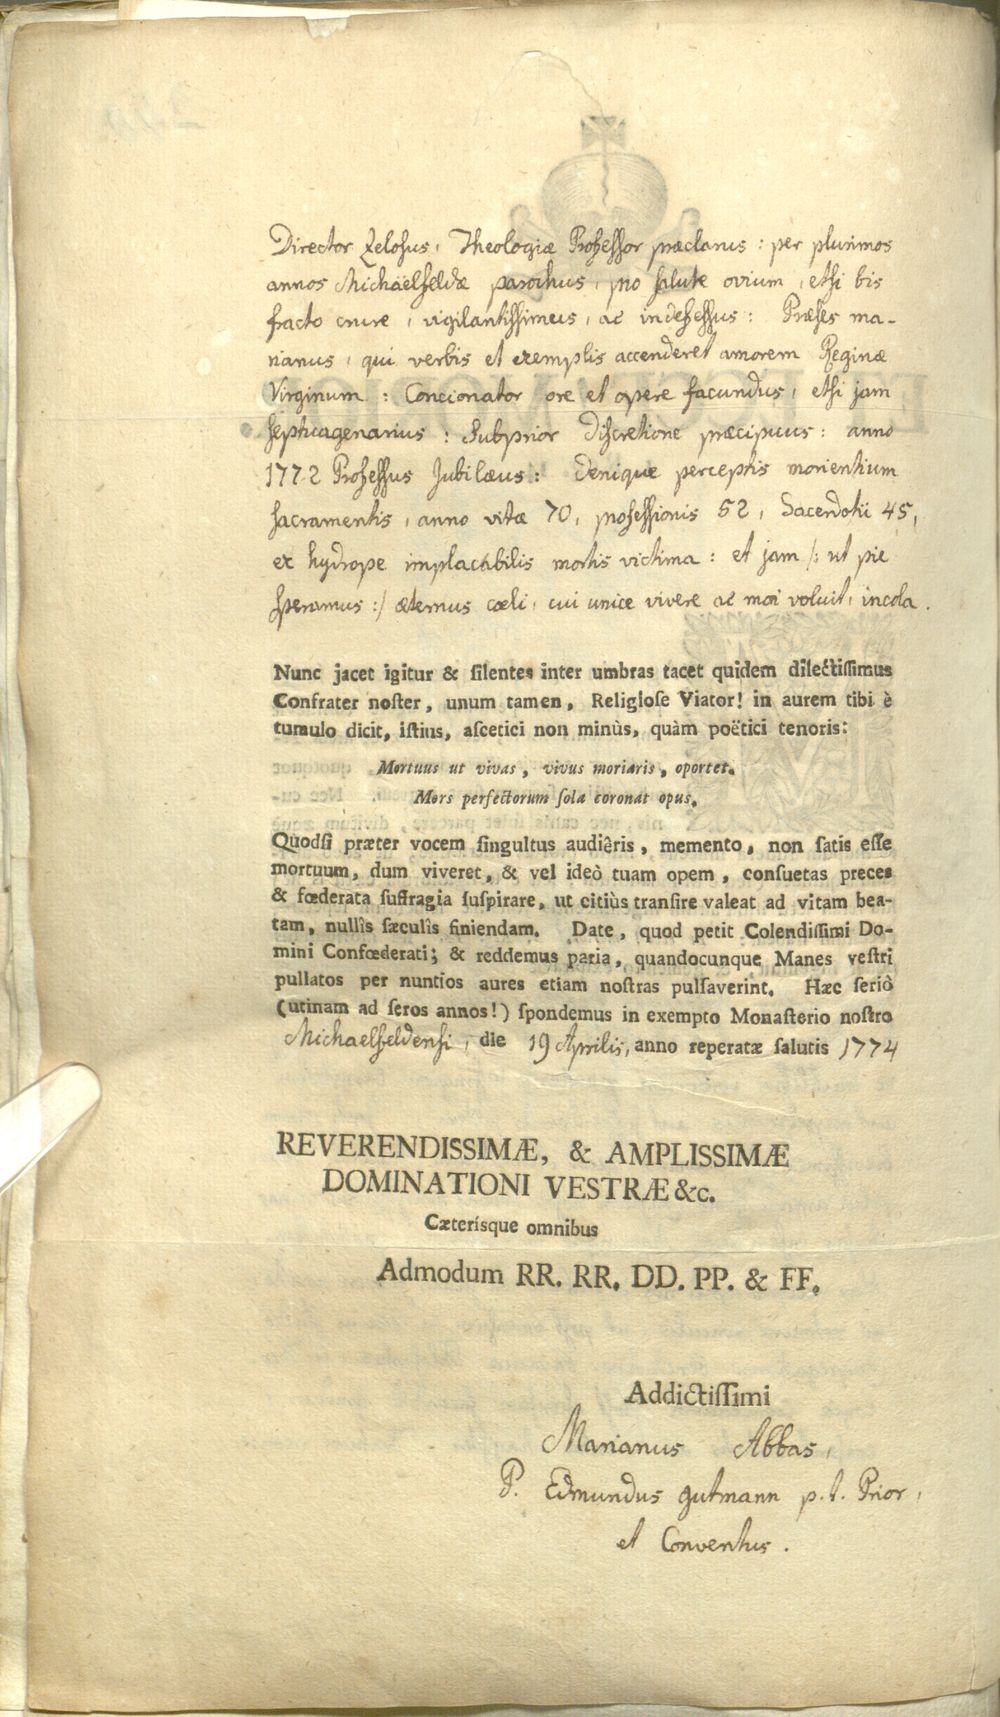 Director Zelosus, Theologiæ Professor præclarus: per plurimos
annos Michaëlfeldæ parochus, pro salute ovium, etsi bis
fracto crure, vigilantissimus, ac indefessus: Præses ma-
rianus, qui verbis et exemplis accenderet amorem Reginæ
Virginum: Concionator ore et opere facundus, etsi jam
septuagenarius: Subprior discretione præcipuus: anno
1772 Professus Jubilæus: denique perceptis morientium
sacramentis, anno vitæ 70, professionis 52, Sacerdotii 45,
ex hydrope implacabilis mortis victima: et jam /: ut pie
speramus :/ æternus cœli, cui unice vivere ac mori voluit, incola.
Nunc jacet igitur & ſilentes inter umbras tacet quidem dilectiſſimus
Confrater noſter, unum tamen, Religioſe Viator! in aurem tibi è
tumulo dicit, iſtius, aſcetici non minùs, quàm poëtici tenoris:
Mortuus ut vivas, vivus moriaris, oportet.
Mors perfectorum ſola coronat opus.
Quodſi præter vocem ſingultus audiêris, memento, non ſatis eſſe
mortuum, dum viveret, & vel ideò tuam opem, conſuetas preces
& fœderata ſuffragia ſuſpirare, ut citiùs tranſire valeat ad vitam bea-
tam, nullîs ſæculîs finiendam. Date, quod petit Colendiſſimi Do-
mini Confœderati; & reddemus paria, quandocunque Manes veſtri
pullatos per nuntios aures etiam noſtras pulſaverint. Hæc ſeriò
(utinam ad ſeros annos!) ſpondemus in exempto Monaſterio noſtro
Michaelfeldensi, die 19 Aprilis, anno reperatæ ſalutis 1774
REVERENDISSIMÆ, & AMPLISSIMÆ
DOMINATIONI VESTRÆ &c.
Cæterísque omnibus
Admodum RR. RR. DD. PP. & FF.
Addictiſſimi
Marianus Abbas,
P. Edmundus Gutmann p.t. Prior,
et Conventus.